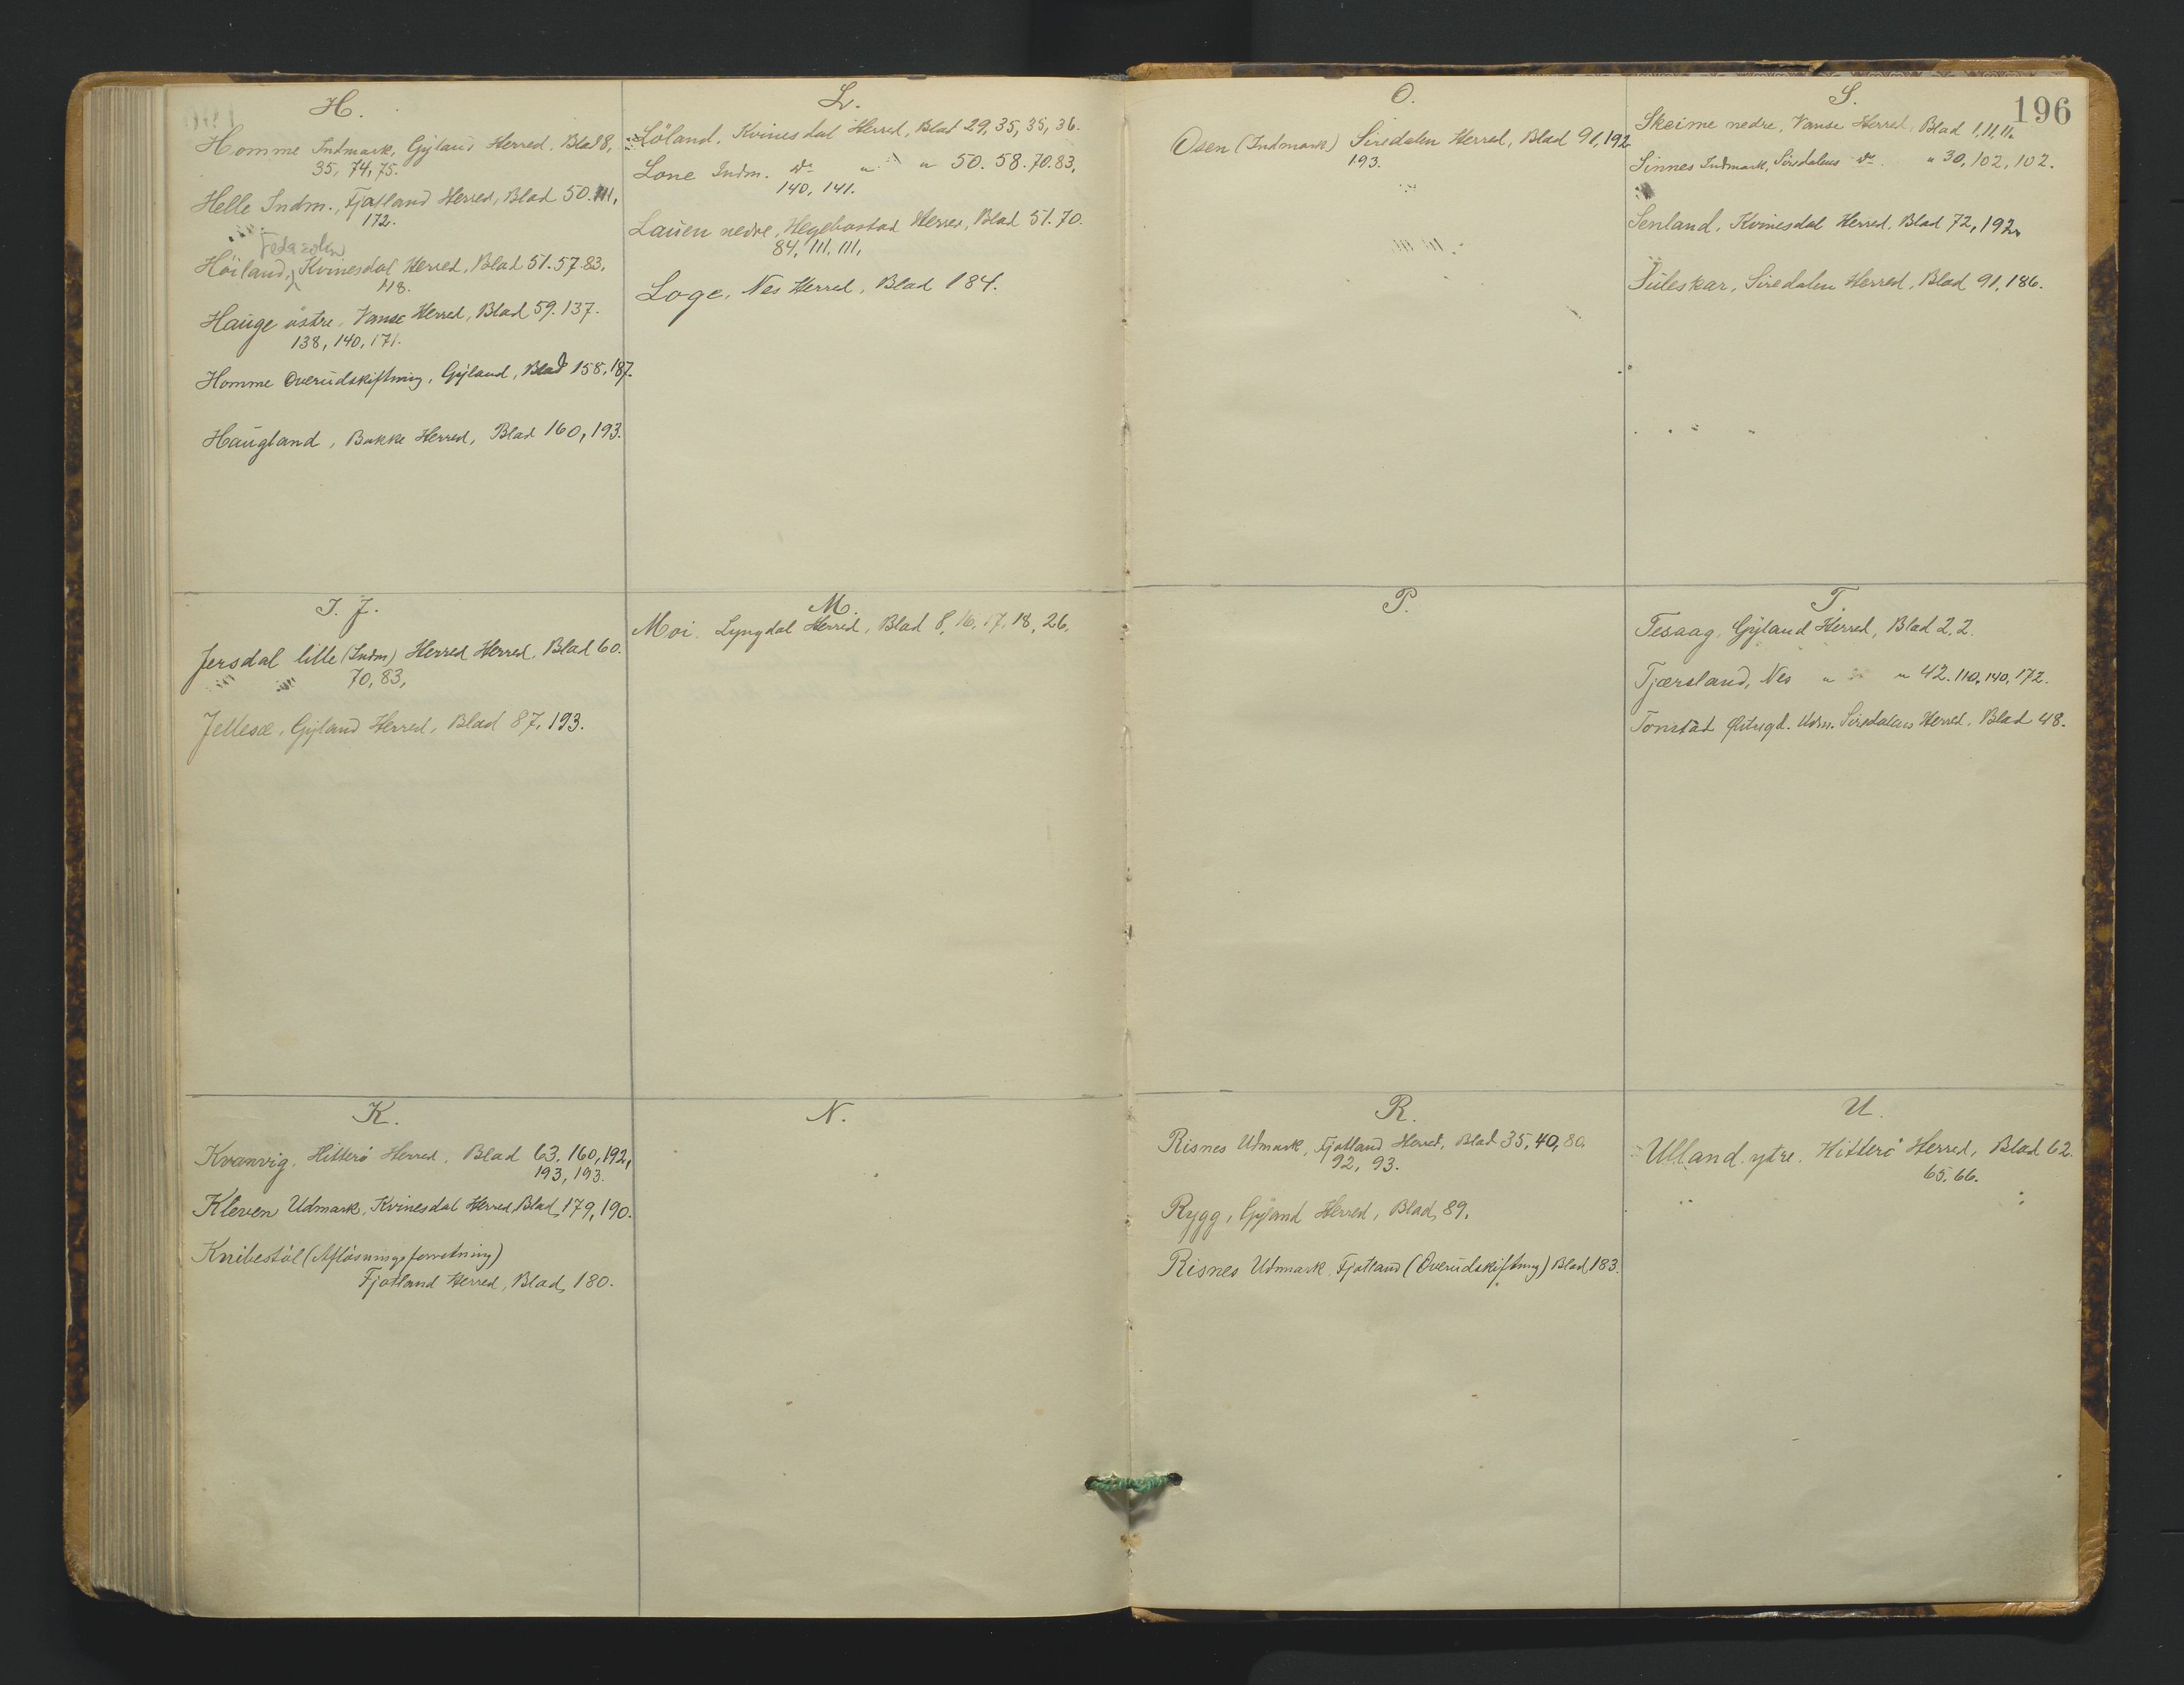 H.
Homme Indmark, Gyland Herred, Blad 8,
35, 74, 75.
Helle Indm., Fjotland Herred, Blad 50. 111,
172.
Feda sokn
Höiland, Kvinesdal Herred, Blad 51. 57. 83,
118.
Hauge östre, Vanse Herred, Blad 59. 137.
138, 140, 171.
Homme Overudskiftning, Gyland, Blad 158, 187.
Haugland, Bakke Herred, Blad 160, 193.
I. J.
Jersdal lille (Indm) Herred Herred, Blad 60.
70, 83,
Jellesæ, Gyland Herred, Blad 87, 193.
K.
Kvanvig, Hitterö Herred, Blad 63. 160, 192,
193, 193.
Kleven Udmark, Kvinesdal Herred, Blad, 179, 190.
Knibestöl (Aflösningsforretning)
Fjotland Herred, Blad, 180.
L.
Löland, Kvinesdal Herred, Blad 29, 35, 35, 36.
Lone Indm. do " " 50. 58. 70. 83,
140, 141.
Lauen nedre, Hegebostad Herred, Blad 51. 70.
84, 111, 111,
Loge, Nes Herred, Blad 184.
M.
Moi, Lyngdal Herred, Blad 8, 16, 17, 18, 26,
N.
196
O.
Osen (Indmark) Siredalen Herred, Blad 91, 192
193.
P.
R.
Risnes Udmark, Fjotland Herred, Blad 35, 40, 80.
92, 93.
Rygg, Gyland Herred, Blad, 89.
Risnes Udmark, Fjotland (Overudskiftning) Blad, 183.
S.
Skeime nedre, Vanse Herred, Blad 1, 11, 11.
Sinnes Indmark, Siredalens do. " 30, 102, 102.
Senland, Kvinesdal Herred, Blad 72, 192.
Suleskar, Siredalen Herred, Blad 91, 186.
T.
Tesaag, Gyland Herred, Blad 2, 2.
Tjærsland, Nes " " 42. 110, 140, 172.
Tonstad Udm. Siredalens Herred, Blad 48.
U.
Ulland ytre, Hitterö Herred, Blad 62.
65, 66.